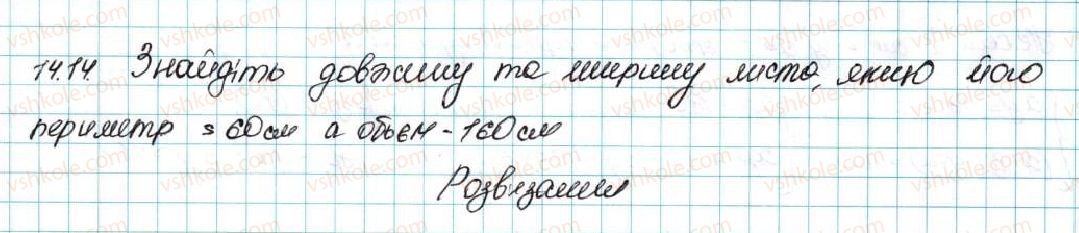 14.14. Знайдіть довжину та ширину листа, якию його
периметр = 60см а объем - 160см
Розвязання